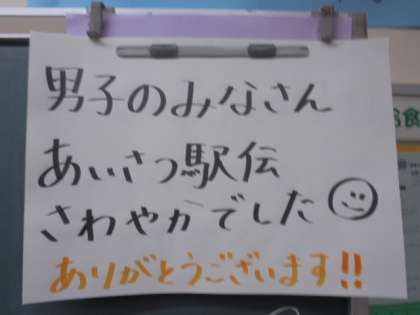 男子のみなさん
あいさつ駅伝
さわやかでした
ありがとうございます!!
食